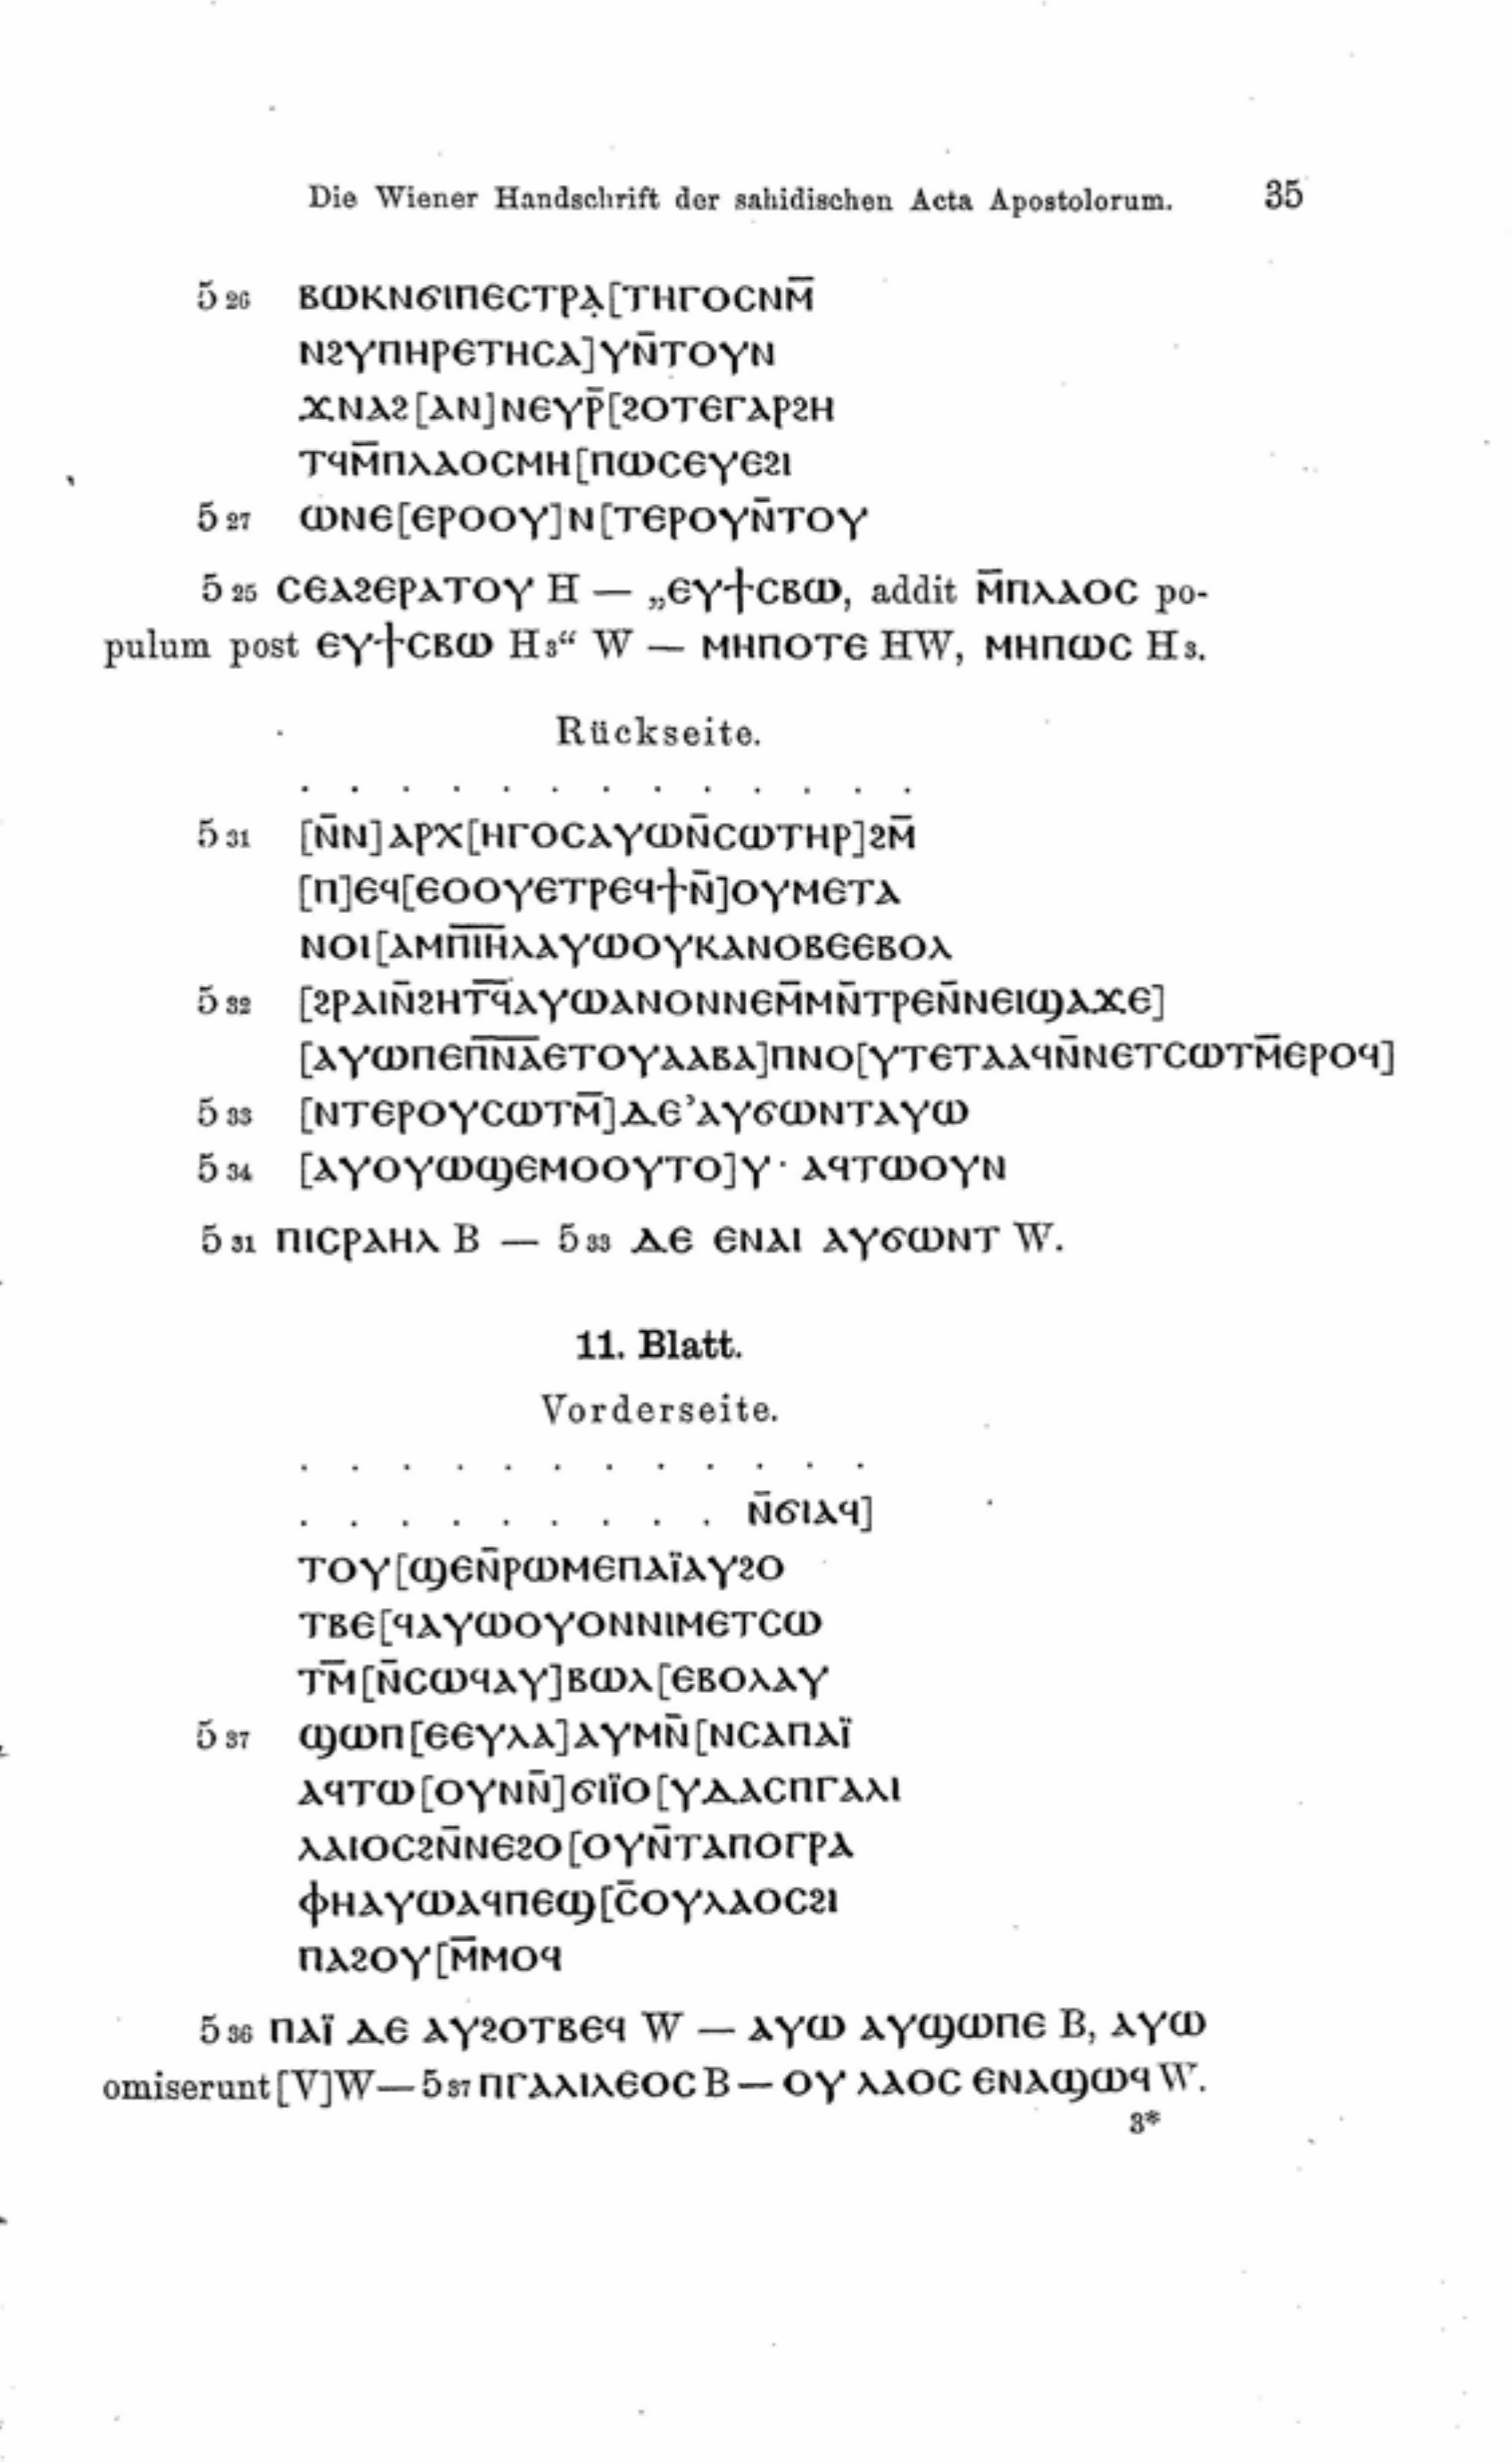 Die Wiener Handschrift der sahidischen Acta Apostolorum. 35
5 26 ⲃⲱⲕⲛϭⲓⲡⲉⲥⲧⲣⲁ̣[ⲧⲏⲅⲟⲥⲛⲙ̅
ⲛϩⲩⲡⲏⲣⲉⲧⲏⲥⲁ]ⲩⲛ̅ⲧⲟⲩⲛ
ϫⲛⲁϩ[ⲁⲛ]ⲛⲉⲩⲣ̅[ϩⲟⲧⲉⲅⲁⲣϩⲏ
ⲧϥⲙ̅ⲡⲗⲁⲟⲥⲙⲏ[ⲡⲱⲥⲉⲩⲉϩⲓ
5 27 ⲱⲛⲉ[ⲉⲣⲟⲟⲩ]ⲛ[ⲧⲉⲣⲟⲩⲛ̅ⲧⲟⲩ
5 25 ⲥⲉⲁϩⲉⲣⲁⲧⲟⲩ H — „ⲉⲩϯⲥⲃⲱ, addit ⲙ̅ⲡⲗⲁⲟⲥ po-
pulum post ⲉⲩϯⲥⲃⲱ H 3“ W — ⲙⲏⲡⲟⲧⲉ HW, ⲙⲏⲡⲱⲥ H 3.
Rückseite.
. . . . . . . . . . . . .
5 31 [ⲛ̅ⲛ]ⲁⲣⲭ[ⲏⲅⲟⲥⲁⲩⲱⲛ̅ⲥⲱⲧⲏⲣ]ϩⲙ̅
[ⲡ]ⲉϥ[ⲉⲟⲟⲩⲉⲧⲣⲉϥϯⲛ̅]ⲟⲩⲙⲉⲧⲁ
ⲛⲟⲓ[ⲁⲙⲡ̅ⲓ̅ⲏ̅ⲗⲁⲩⲱⲟⲩⲕⲁⲛⲟⲃⲉⲉⲃⲟⲗ
5 32 [ϩⲣⲁⲓⲛ̅ϩⲏⲧ̅ϥ̅ⲁⲩⲱⲁⲛⲟⲛⲛⲉⲙ̅ⲙⲛ̅ⲧⲣⲉⲛ̅ⲛⲉⲓϣⲁϫⲉ]
[ⲁⲩⲱⲡⲉⲡ̅ⲛ̅ⲁ̅ⲉⲧⲟⲩⲁⲁⲃⲁ]ⲡⲛⲟ[ⲩⲧⲉⲧⲁⲁϥⲛ̅ⲛⲉⲧⲥⲱⲧⲙ̅ⲉⲣⲟϥ]
5 33 [ⲛⲧⲉⲣⲟⲩⲥⲱⲧⲙ̅]ⲇⲉ’ⲁⲩϭⲱⲛⲧⲁⲩⲱ
5 34 [ⲁⲩⲟⲩⲱϣⲉⲙⲟⲟⲩⲧⲟ]ⲩ· ⲁϥⲧⲱⲟⲩⲛ
5 31 ⲡⲓⲥⲣⲁⲏⲗ B — 5 33 ⲇⲉ ⲉⲛⲁⲓ ⲁⲩϭⲱⲛⲧ W.
11. Blatt.
Vorderseite.
. . . . . . . . . . . .
. . . . . . . . . ⲛ̅ϭⲓⲁϥ]
ⲧⲟⲩ[ϣⲉⲛ̅ⲣⲱⲙⲉⲡⲁⲓ̈ⲁⲩϩⲟ
ⲧⲃⲉ[ϥⲁⲩⲱⲟⲩⲟⲛⲛⲓⲙⲉⲧⲥⲱ
ⲧⲙ̅[ⲛ̅ⲥⲱϥⲁⲩ]ⲃⲱⲗ[ⲉⲃⲟⲗⲁⲩ
5 37 ϣⲱⲡ[ⲉⲉⲩⲗⲁ]ⲁⲩⲙⲛ̅[ⲛⲥⲁⲡⲁⲓ̈
ⲁϥⲧⲱ[ⲟⲩⲛⲛ̅]ϭⲓⲓ̈ⲟ[ⲩⲇⲁⲥⲡⲅⲁⲗⲓ
ⲗⲁⲓⲟⲥϩⲛ̅ⲛⲉϩⲟ[ⲟⲩⲛ̅ⲧⲁⲡⲟⲅⲣⲁ
ⲫⲏⲁⲩⲱⲁϥⲡⲉϣ[ⲥ̅ⲟⲩⲗⲁⲟⲥϩⲓ
ⲡⲁϩⲟⲩ[ⲙ̅ⲙⲟϥ
5 36 ⲡⲁⲓ̈ ⲇⲉ ⲁⲩϩⲟⲧⲃⲉϥ W — ⲁⲩⲱ ⲁⲩϣⲱⲡⲉ B, ⲁⲩⲱ
omiserunt [V]W — 5 37 ⲡⲅⲁⲗⲓⲗⲉⲟⲥ B — ⲟⲩ ⲗⲁⲟⲥ ⲉⲛⲁϣⲱϥ W.
3*